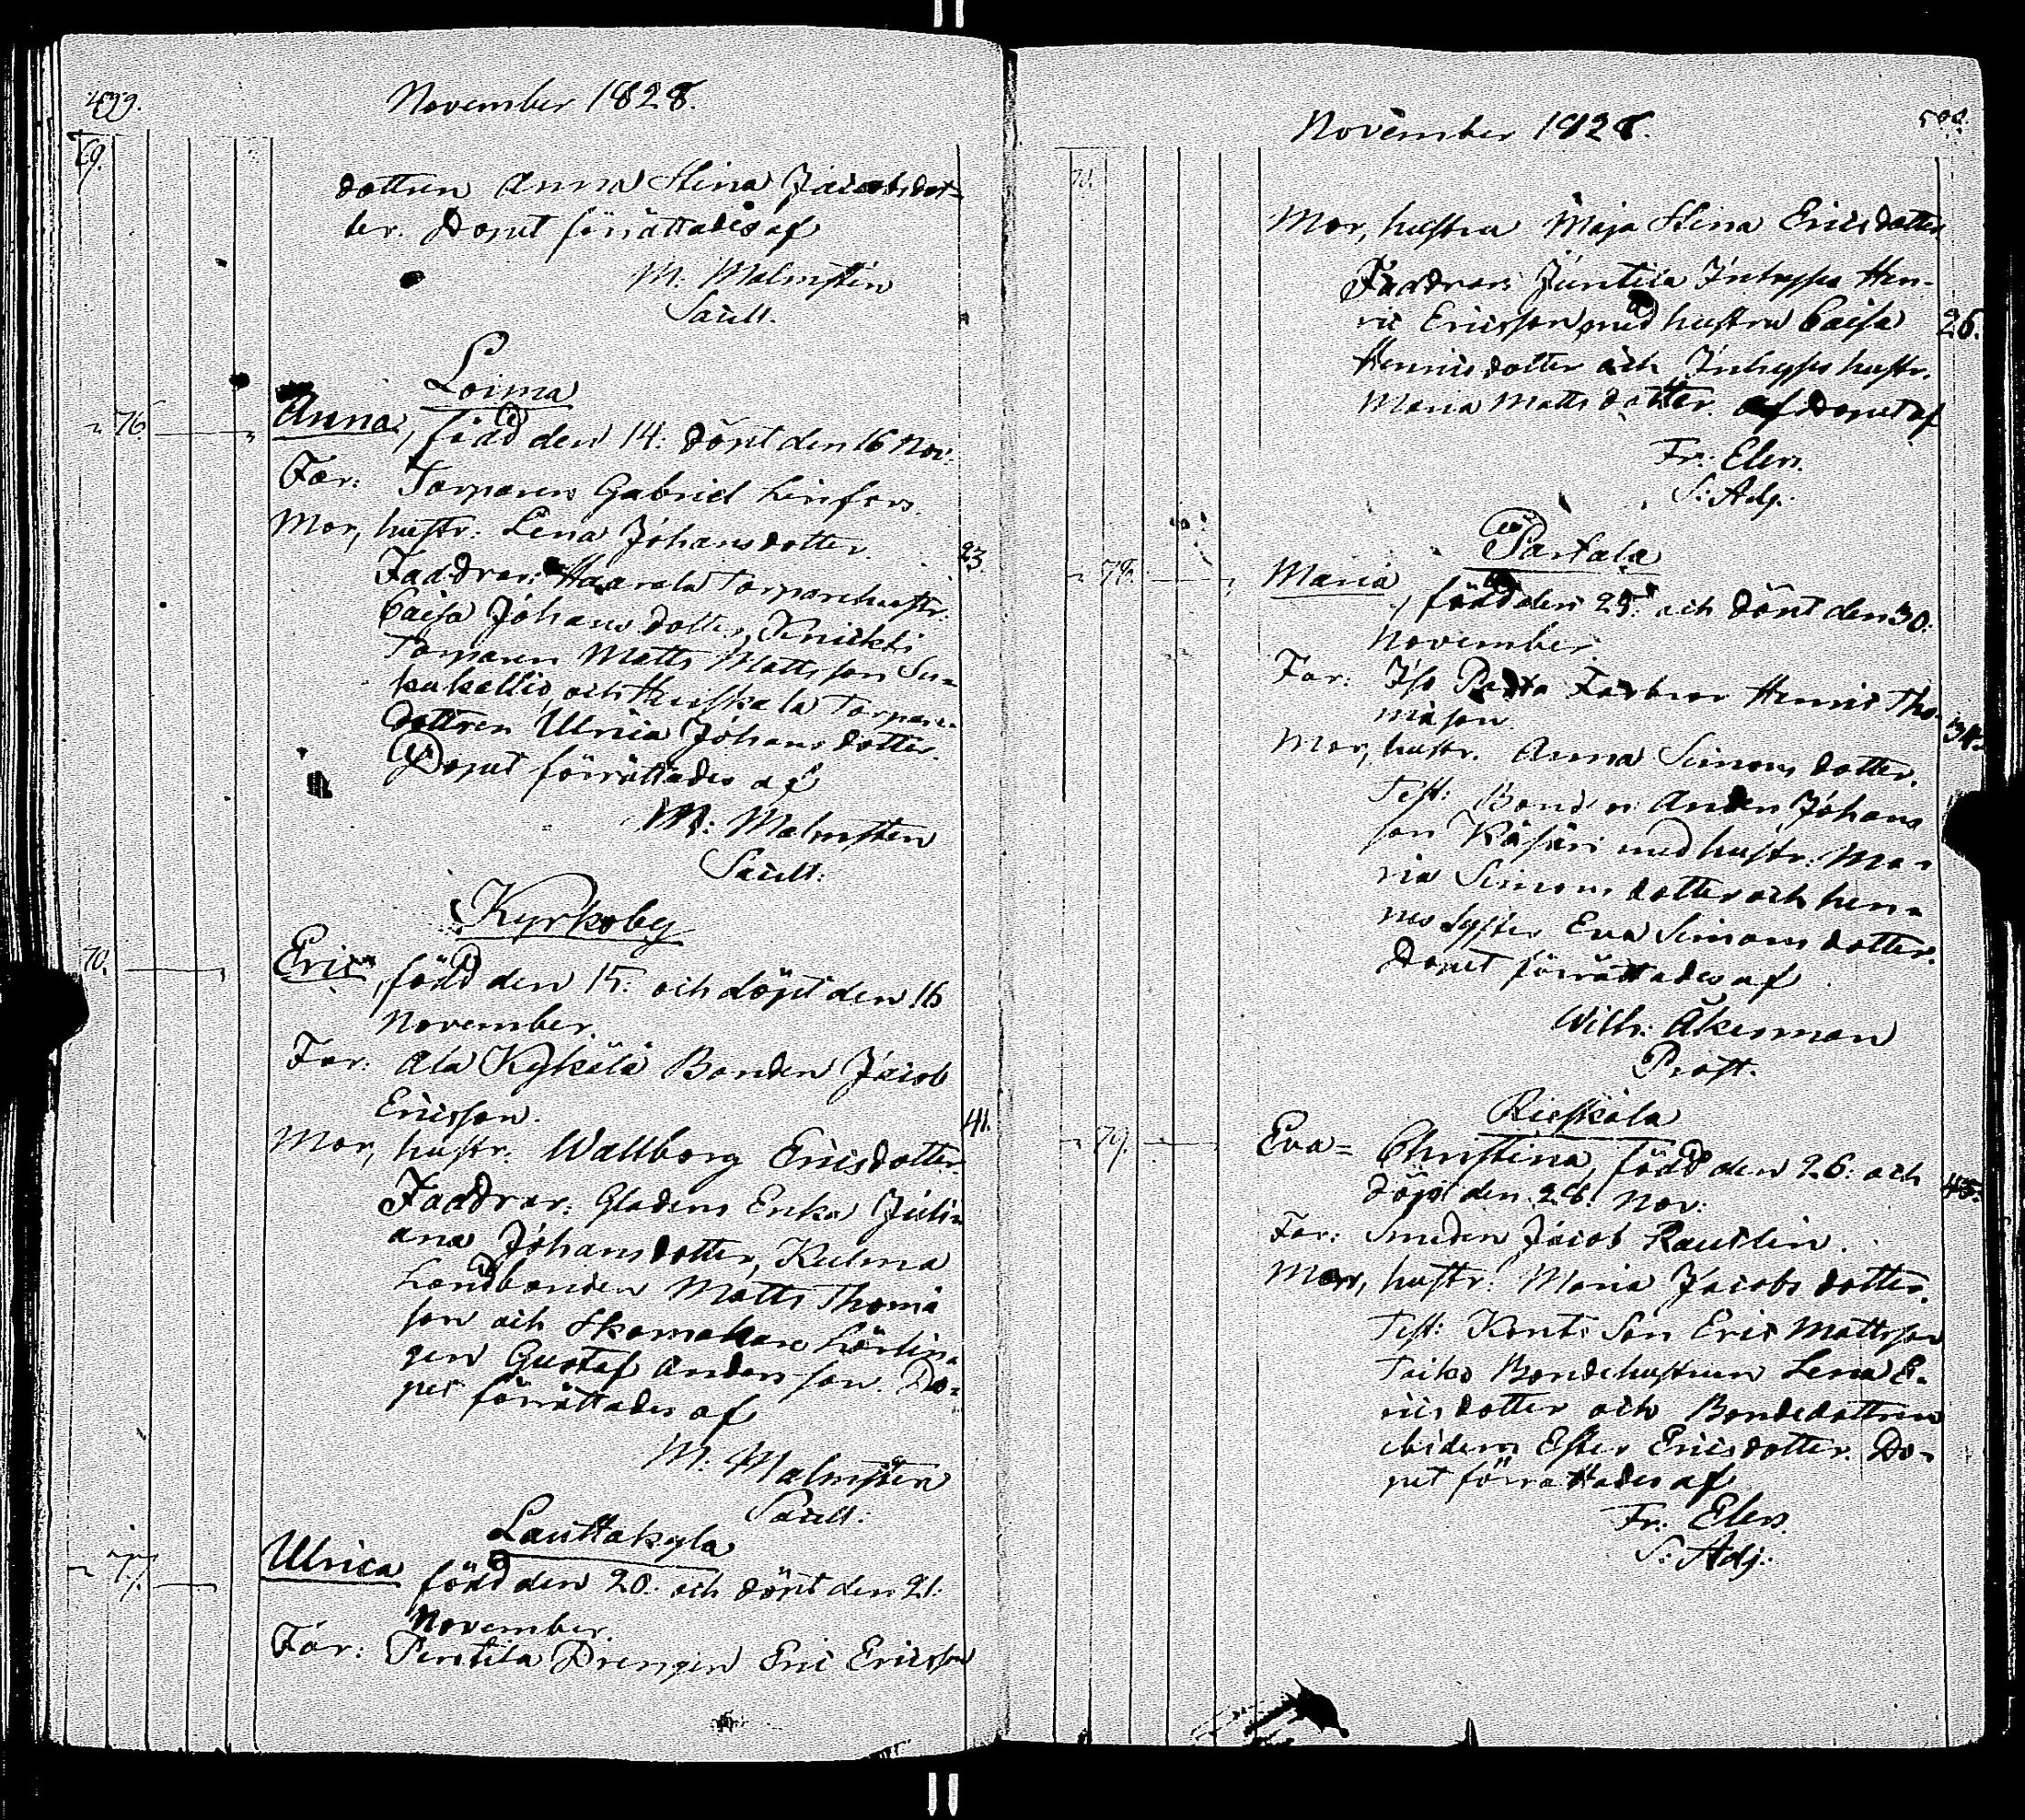 499.
November 1828.
69.
dottren Anna Stina Jacobsdot-
ter. Dopet förrättades af
M. Malmstén
Saull.
Loima
76
Anna, född den 14: döpt den 16 Nov:
Far: Torparen Gabriel Linfors.
Mor, hustr: Lena Johansdotter.
23.
Faddrar: Haarala Torparehustr:
Caisa Johansdotter, Knickti
Torparen Matts Mattsson Su-
kukallio, och Huiskala Torpare-
dottren Ulrica Johansdotter.
Dopet förrättades af
M: Malmstén
Saull:
Kyrkoby
70.
Eric, född den 15: och döpt den 16
November.
Far: Ala Kykölä Bonden Jacob
Ericsson.
Mor, hustr. Wallborg Ericsdotter
41.
Faddrar: Gladens Enka Juli-
ana Johansdotter, Kulma
Landbonden Matts Thoma
son och Skomakare Lärlin-
gen Gustaf Andersson. Do-
pet förrättades af
M. Malmstén
Saull:
Lauttakyla
77.
Ulrica född den 20: och döpt den 21:
November.
Far: Penttila Drengen Eric Ericsson
November 1828.
500.
70.
Mor, hustru Maja Stina Ericsdotter
Faddrar: Juntila Inhyses Hen-
ric Ericsson, med hustru Caisa
26.
Henricsdotter och Inhyses hustr.
Maria Mattsdotter. Dopet af
Fr: Elers.
S: Adj.
Partala
78.
Maria, född den 25: och döpt den 30:
November
Far: Iso Farbror Henric Tho-
mason
34.
Mor, hustr. Anna Simonsdotter.
Test: Bonden Anders Johans
son Käsäri med hustr: Ma-
ria Simonsdotter och hen-
nes Syster Eva Simonsdotter.
Dopet förrättades af
Wilh: Åkerman
Prost.
Rieskala
79.
Eva= Christina, född den 26: och
döpt den 28: Nov:
45.
Far: Smeden Jacob Rautelin.
Mor, hustr: Maria Jacobsdotter.
Test: Konts Son Eric Mattsson
Taiko Bondehustrun Lena E-
ricsdotter och Bondedottren
ibidem Ester Ericsdotter. Do-
pet förrättades af
Fr: Elers.
S: Adj: